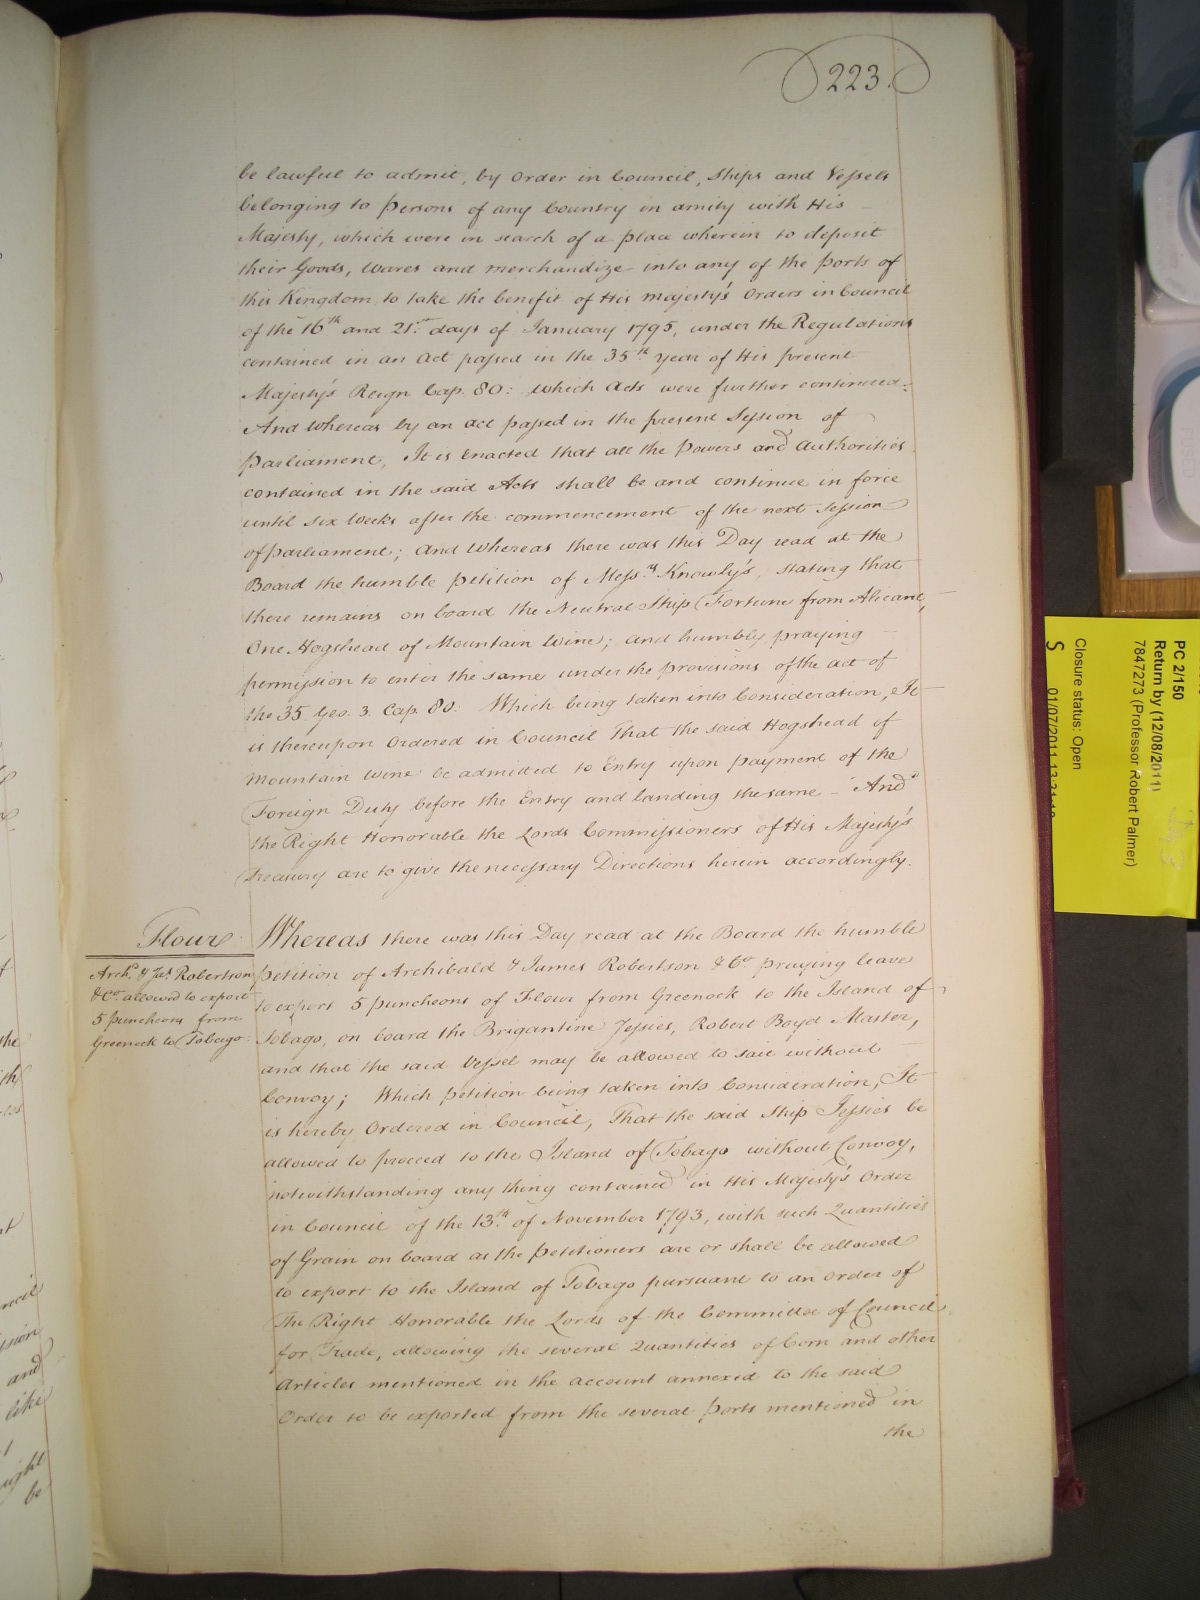 223.
be lawful to admit, by Order in Council, Ships and Vessels
belonging to Persons of any Country in amity with His
Majesty, which were in search of a place wherein to deposit
their Goods, Wares and merchandize into any of the Ports of
this Kingdom, to take the benefit of His Majesty's Orders in Council
of the 16th and 21st days of January 1795, under the Regulations
contained in an Act passed in the 35th year of His present
Majesty's Reign Cap. 80: which Acts were further continued:
And Whereas by an act passed in the present Session of
Parliament, It is Enacted that all the Powers and Authorities
contained in the said Acts shall be and continue in force
until six Weeks after the commencement of the next Session
of Parliament; And Whereas there was this Day read at the
Board the humble Petition of Messrs Knowly's, stating that
there remains on board the Neutral Ship Fortune from Alicant,
One Hogshead of Mountain Wine; and humbly praying
permission to enter the same under the provisions of the act of
the 35 Geo. 3. Cap. 80: Which being taken into Consideration, It
is thereupon Ordered in Council That the said Hogshead of
Mountain Wine be admitted to Entry upon payment of the
Foreign Duty before the Entry and landing the same - And
the Right Honorable the Lords Commissioners of His Majesty's
Treasury are to give the necessary Directions herein accordingly.
Flour
Archd & Jas Robertson
& Co allowed to export
5 puncheons from
Greenock to Tobago
Whereas there was this Day read at the Board the humble
Petition of Archibald & James Robertson & Co praying leave
to export 5 puncheons of Flour from Greenock to the Island of
Tobago, on board the Brigantine Jessies, Robert Boyd Master,
and that the said Vessel may be allowed to sail without
Convoy; Which Petition being taken into Consideration, It
is hereby Ordered in Council, That the said Ship Jessies be
allowed to proceed to the Island of Tobago without Convoy,
notwithstanding any thing contained in His Majesty's Order
in Council of the 13th of November 1793, with such Quantities
of Grain on board as the Petitioners are or shall be allowed
to export to the Island of Tobago pursuant to an Order of
The Right Honorable the Lords of the Committee of Council
for Trade, allowing the several Quantities of Corn and other
Articles mentioned in the account annexed to the said
Order to be exported from the several Ports mentioned in
the
PC 2/150
Return by (12/08/2011)
7847273 (Professor Robert Palmer)
Closure status: Open
S